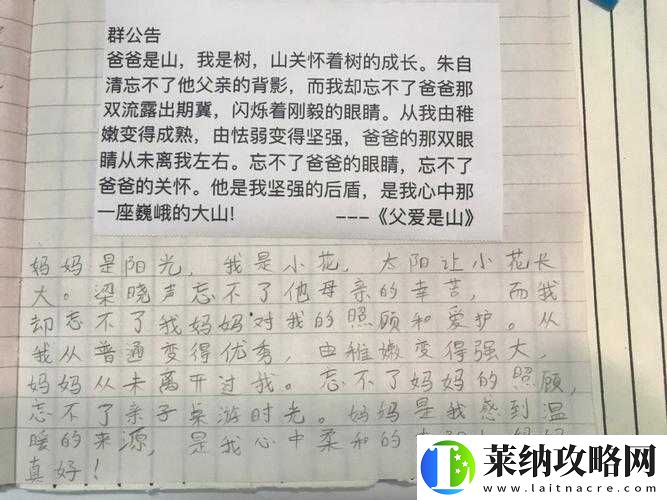 群公告
爸爸是山，我是树，山关怀着树的成长。朱自
清忘不了他父亲的背影，而我却忘不了爸爸那
双流露出期冀，闪烁着刚毅的眼睛。从我由稚
嫩变得成熟，由怯弱变得坚强，爸爸的那双眼
睛从未离我左右。忘不了爸爸的眼睛，忘不了
爸爸的关怀。他是我坚强的后盾，是我心中那
一座巍峨的大山!
---《父爱是山》
妈妈是阳光，我是小花，太阳让小花长
大。梁晓声忘不了他母亲的辛苦，而我
却忘不了我妈妈对我的照顾和爱护。从
我从普通变得优秀，由稚嫩变得强大，
妈妈从未离开过我。忘不了妈妈的照顾，
忘不了亲子桌游时光。妈妈是我感到温
暖的来源，是我心中柔和的
真好！
莱纳攻略网
www.laitnacre.com